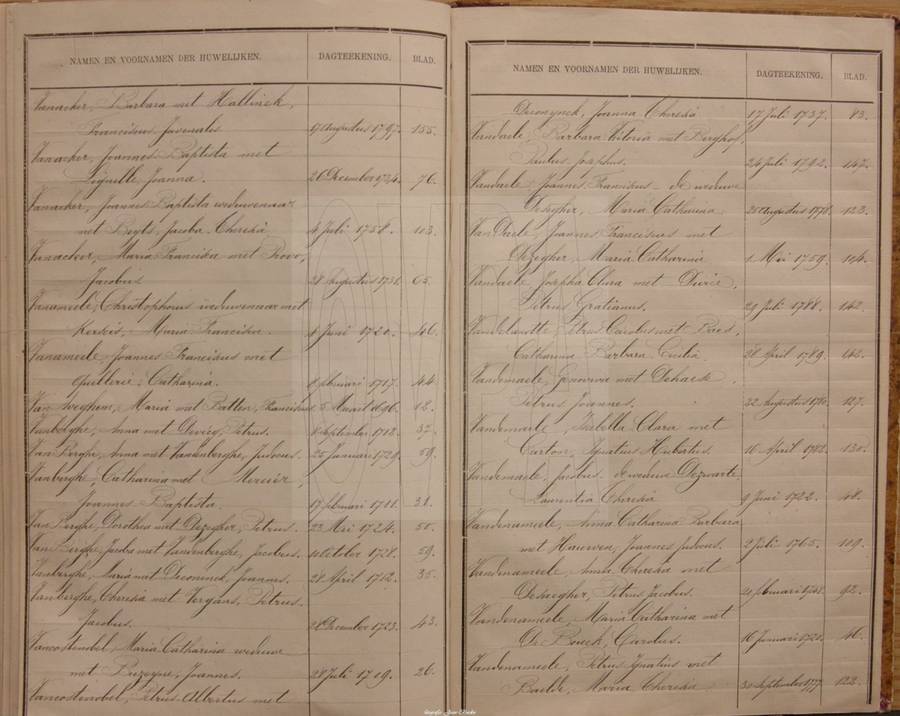 NAMEN EN VOORNAMEN DER HUWELIJKEN. DAGTEEKENING. BLAD.
Vanacker, Barbara met Hallinck,
Franciscus Juvenalis 19 Augustus 1797. 155.
Vanacker, Joannes Baptista met
Lignelle, Joanna. 26 December 1724. 76.
Vanacker, Joannes Baptista weduwenaar
met Beyls, Jacoba Theresia 4 Juli 1758. 113.
Vanacker, Maria Francisca met Provo,
Jacobus 28 Augustus 1731. 65.
Vanameele, Christophorus weduwenaar met
Maria Francisca. 4 Juni 1720. 46.
Vanameele Joannes Franciscus met
Quillerie, Catharina. 8 februari 1717. 44.
Maria met Batten, Franciscus 5 Maart 1696. 12.
Vanberghe, Anna met Petrus. 8 September 1712. 37.
Van Berghe, Anna met Vandenberghe, Judocus. 25 Januari 1729. 59.
Vanberghe, Catharina met Mercier,
Joannes Baptista. 17 februari 1711. 31.
Van Berghe, Dorothea met Dezegher, Petrus. 23 Mei 1724. 50.
Van Berghe, Jacoba met Vandenberghe, Jacobus. 10 October 1728. 59.
Vanberghe, Maria met Deconinck, Joannes. 28 April 1712. 35.
Vanberghe, Theresia met Vergans, Petrus
Jacobus. 28 December 1723. 43.
Vancostenobel, Maria Catharina weduwe
met Joannes. 28 Juli 1719. 26.
Vancostenobel, Petrus Albertus met
NAMEN EN VOORNAMEN DER HUWELIJKEN. DAGTEEKENING. BLAD.
Deconynck, Joanna Theresia 17 Juli 1737. 83.
Vandaele, Barbara Victoria met Berghof,
Paulus Josephus. 24 Juli 1792. 147.
Vandaele, Joannes Franciscus – de weduwe
Dezegher, Maria Catharina 25 Augustus 1778. 123.
Van Daele, Joannes Franciscus met
Dezegher, Maria Catharina 1 Mei 1759. 104.
Vandaele, Josepha Clara met
Petrus Gratianus. 29 Juli 1788. 142.
Petrus Carolus met Baes,
Catharina Barbara Cecilia. 28 April 1789. 142.
Vandemaele, Genoveva met Dehaek,
Petrus Joannes. 22 Augustus 1780. 127.
Vandemaele, Isabella Clara met
Carton, Ignatius Hubertus. 16 April 1782. 130.
Vandemaele, Jacobus. de weduwe Dezwarte
Laurentia Theresia 9 Juni 1722. 48.
Vandenameele, Anna Catharina Barbara
met Hauwen, Joannes Judocus. 2 Juli 1765. 109.
Vandenameele, Anna Theresia met
Dezegher, Petrus Jacobus. februari 92.
Vandenameele, Maria Catharina met
De Bouck, Carolus. 16 Januari 1720. 46.
Vandenameele, Petrus Ignatius met
Baelde, Maria Theresia 30 September 1777. 122.